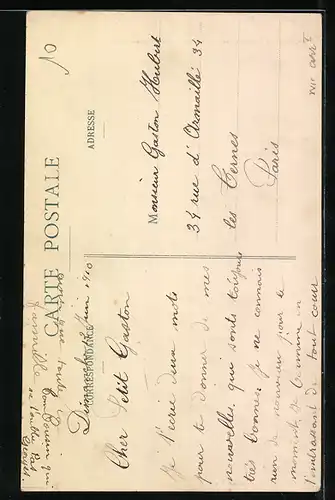 CARTE POSTALE
CORRESPONDANCE
ADRESSE
Dimanche Juin 1910
Cher Petit Gaston
Je t'écris deux mots
pour te donner de mes
nouvelles qui sont toujours
très bonnes. Je ne connais
rien de nouveau pour le
moment. Je termine en
t'embrassant de tout cœur
ainsi que toute la
famille
Ton Cousin qui
ne t'oublie pas
Monsieur Gaston Hubert
34 rue d'Armaillé 34
les Ternes
Paris
XVII arrt